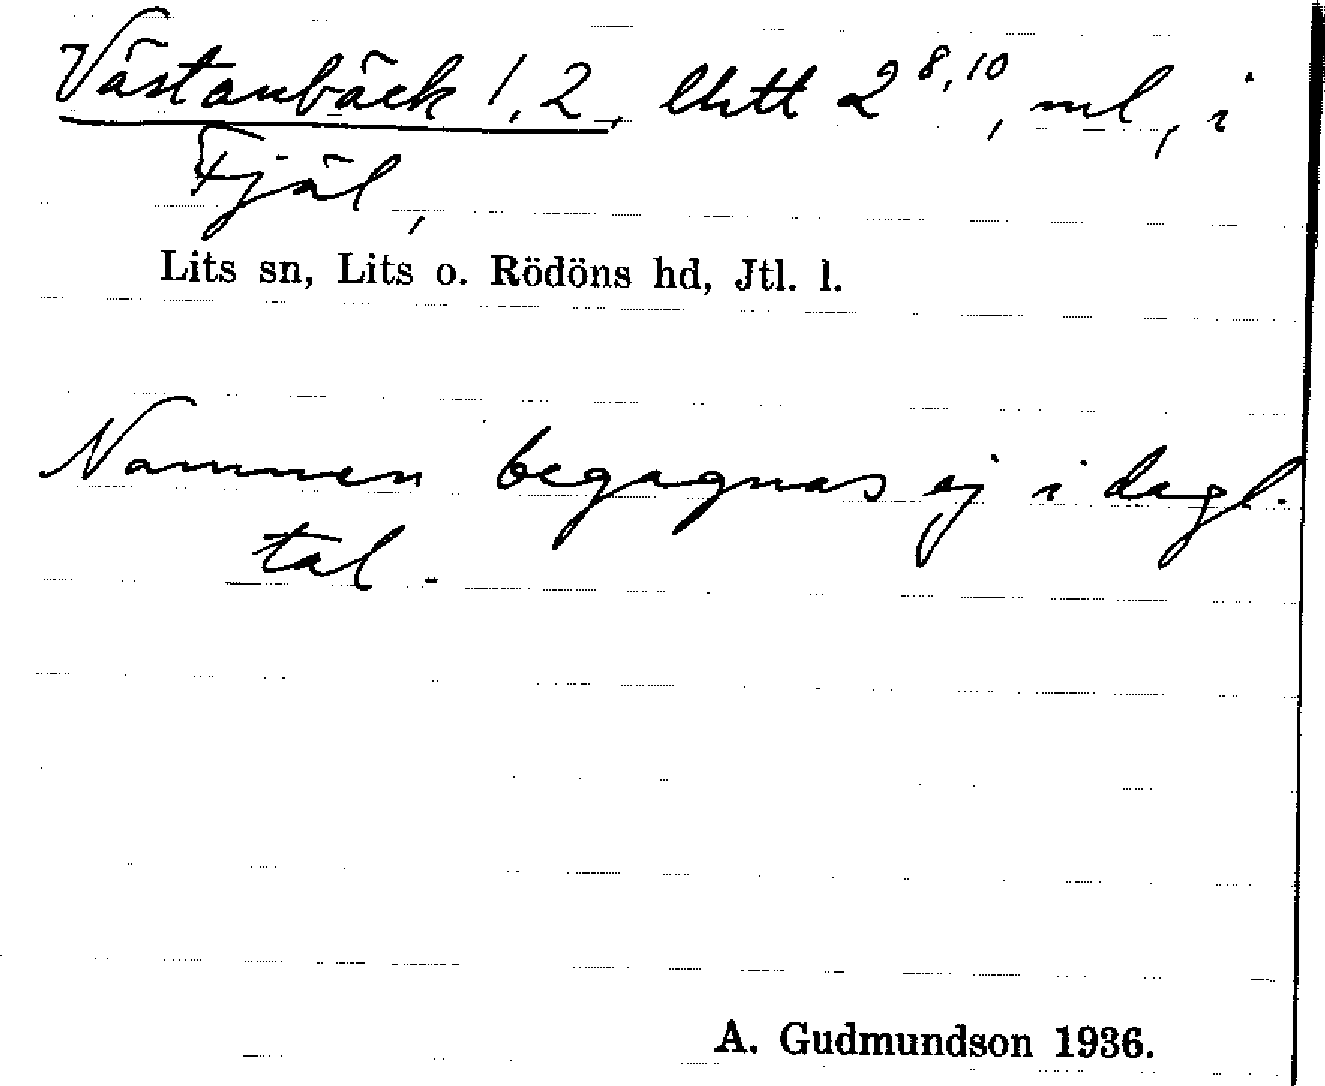 Västanbäck 1, 2, litt 2 8,10, ml, i
Fjäl,
Lits sn, Lits o. Rödöns hd, Jtl. l.
Namnen begagnas ej i dagl.
tal.
A. Gudmundson 1936.